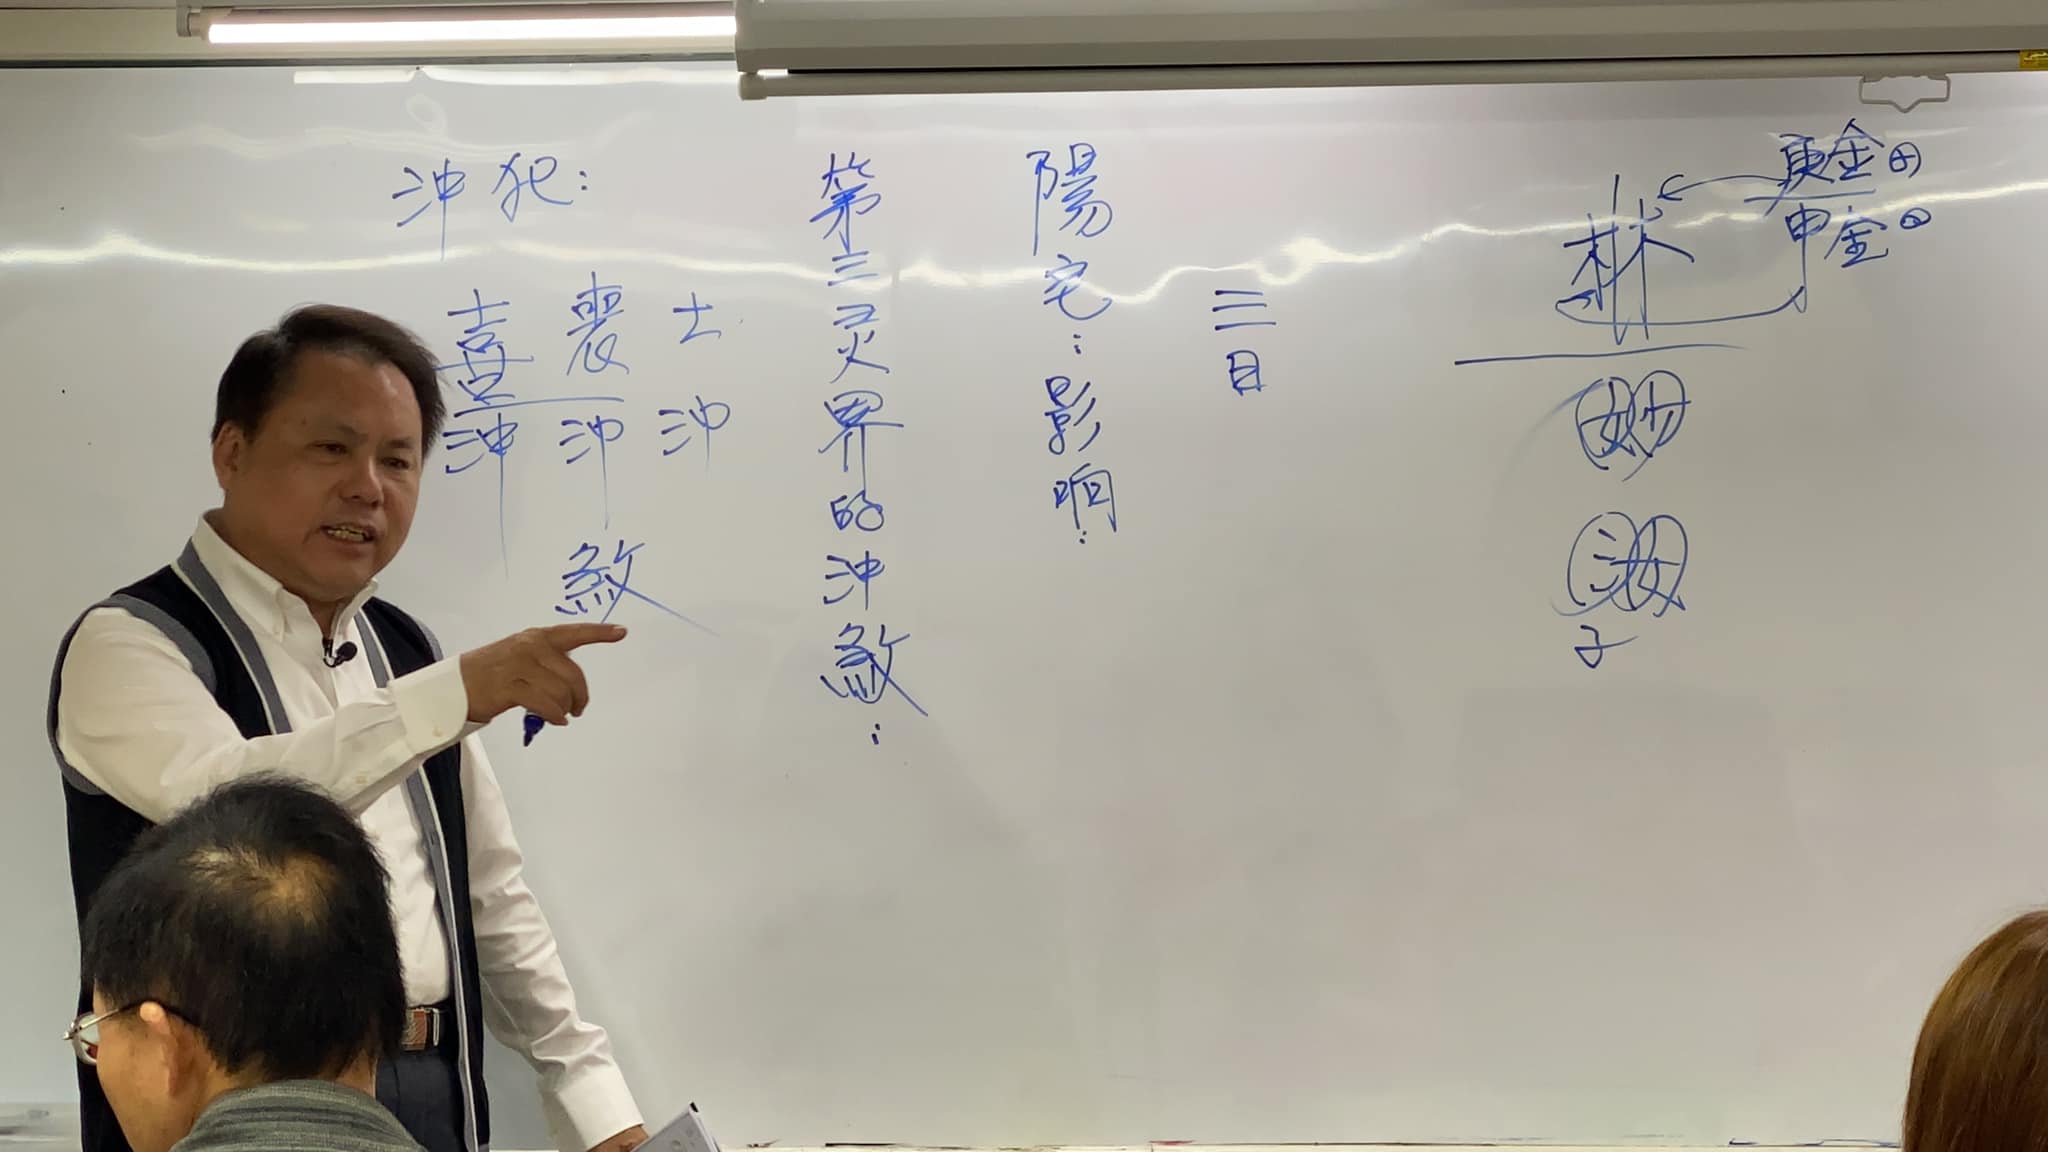 庚金⊕
申金⊖
林
妙
汝
子
三目
陽宅:影响:
第三灵界的沖煞:
沖犯:
土沖
喪沖
喜沖
煞